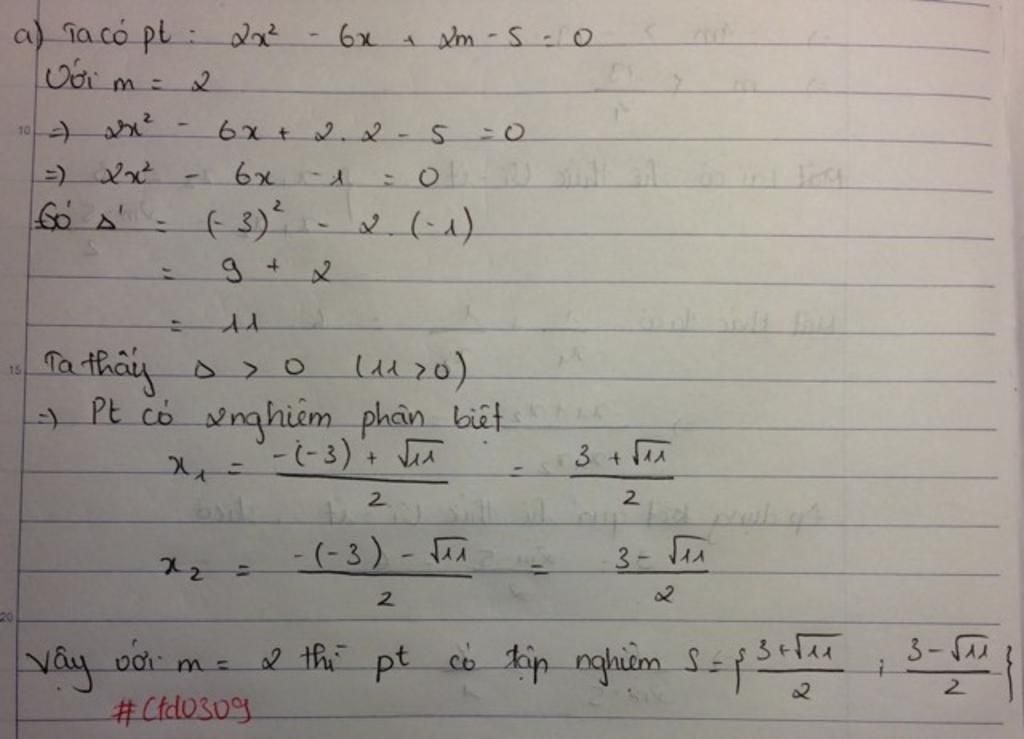 a) Ta có pt: 2x² - 6x + 2m - 5 = 0
Với m = 2
10 => 2x² - 6x + 2.2 - 5 = 0
=> 2x² - 6x - 1 = 0
Có Δ' = (-3)² - 2.(-1)
= 9 + 2
= 11
15 Ta thấy Δ > 0 (11 > 0)
=> Pt có 2 nghiệm phân biệt
x₁ = (-(-3) + √11)/2 = (3 + √11)/2
x₂ = (-(-3) - √11)/2 = (3 - √11)/2
20
Vậy với m = 2 thì pt có tập nghiệm S = {(3+√11)/2 ; (3-√11)/2}